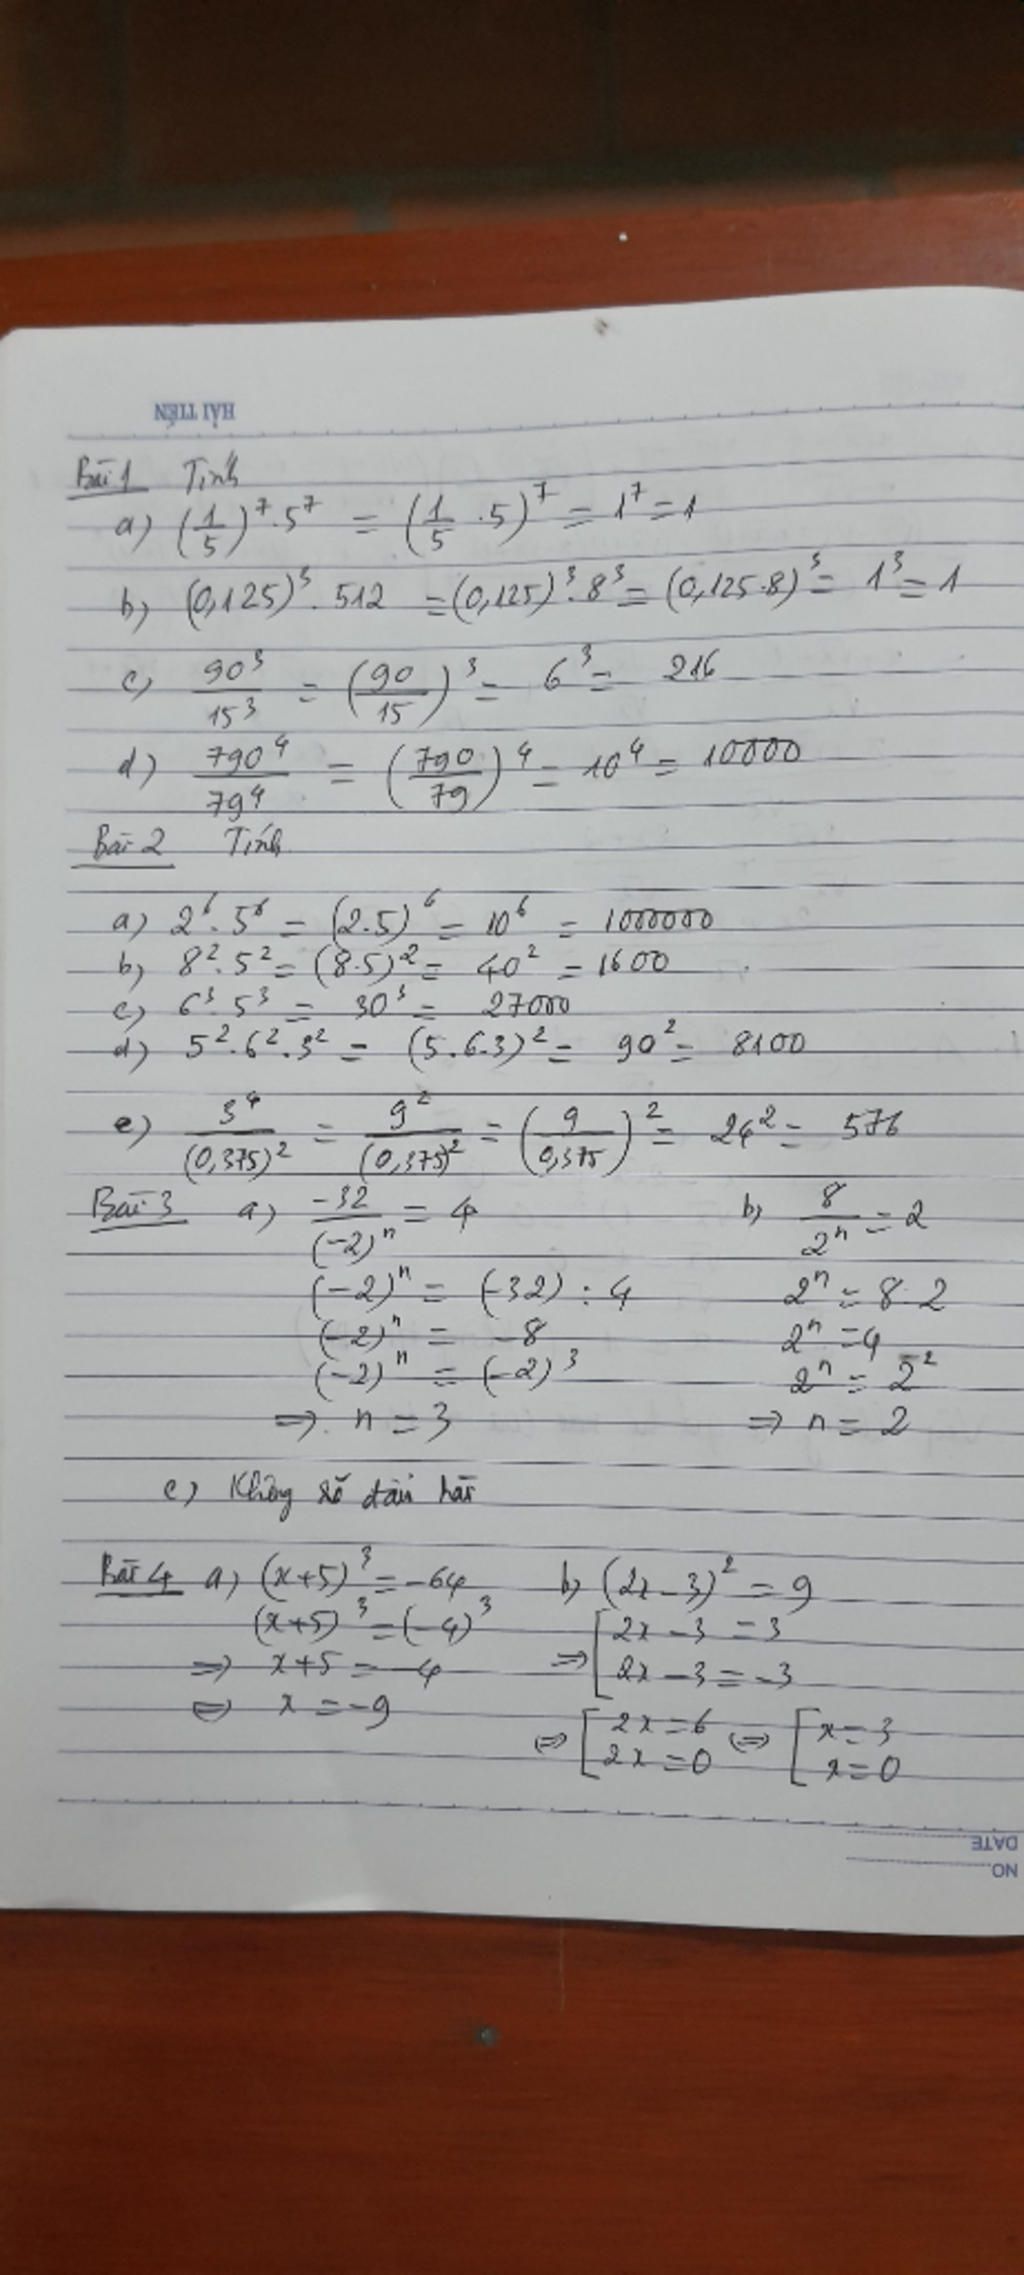 HẢI TIẾN
Bài 1 Tính
a) (1/5)^7 . 5^7 = (1/5 . 5)^7 = 1^7 = 1
b) (0,125)^3 . 512 = (0,125)^3 . 8^3 = (0,125.8)^3 = 1^3 = 1
c) 90^3/15^3 = (90/15)^3 = 6^3 = 216
d) 790^4/79^4 = (790/79)^4 = 10^4 = 10000
Bài 2 Tính
a) 2^6 . 5^6 = (2.5)^6 = 10^6 = 1000000
b) 8^2 . 5^2 = (8.5)^2 = 40^2 = 1600
c) 6^3 . 5^3 = 30^3 = 27000
d) 5^2 . 6^2 . 3^2 = (5.6.3)^2 = 90^2 = 8100
e) 3^4/(0,375)^2 = 9^2/(0,375)^2 = (9/0,375)^2 = 24^2 = 576
Bài 3 a) -32/(-2)^n = 4 b) 8/2^n = 2
(-2)^n = (-32) : 4 2^n = 8 : 2
(-2)^n = -8 2^n = 4
(-2)^n = (-2)^3 2^n = 2^2
=> n = 3 => n = 2
c) Không rõ đầu bài
Bài 4 a) (x+5)^3 = -64 b) (2x-3)^2 = 9
(x+5)^3 = (-4)^3 [2x-3 = 3
=> x+5 = -4 => [2x-3 = -3
<=> x = -9
<=> [2x=6 <=> [x=3
[2x=0 [x=0
DATE
NO